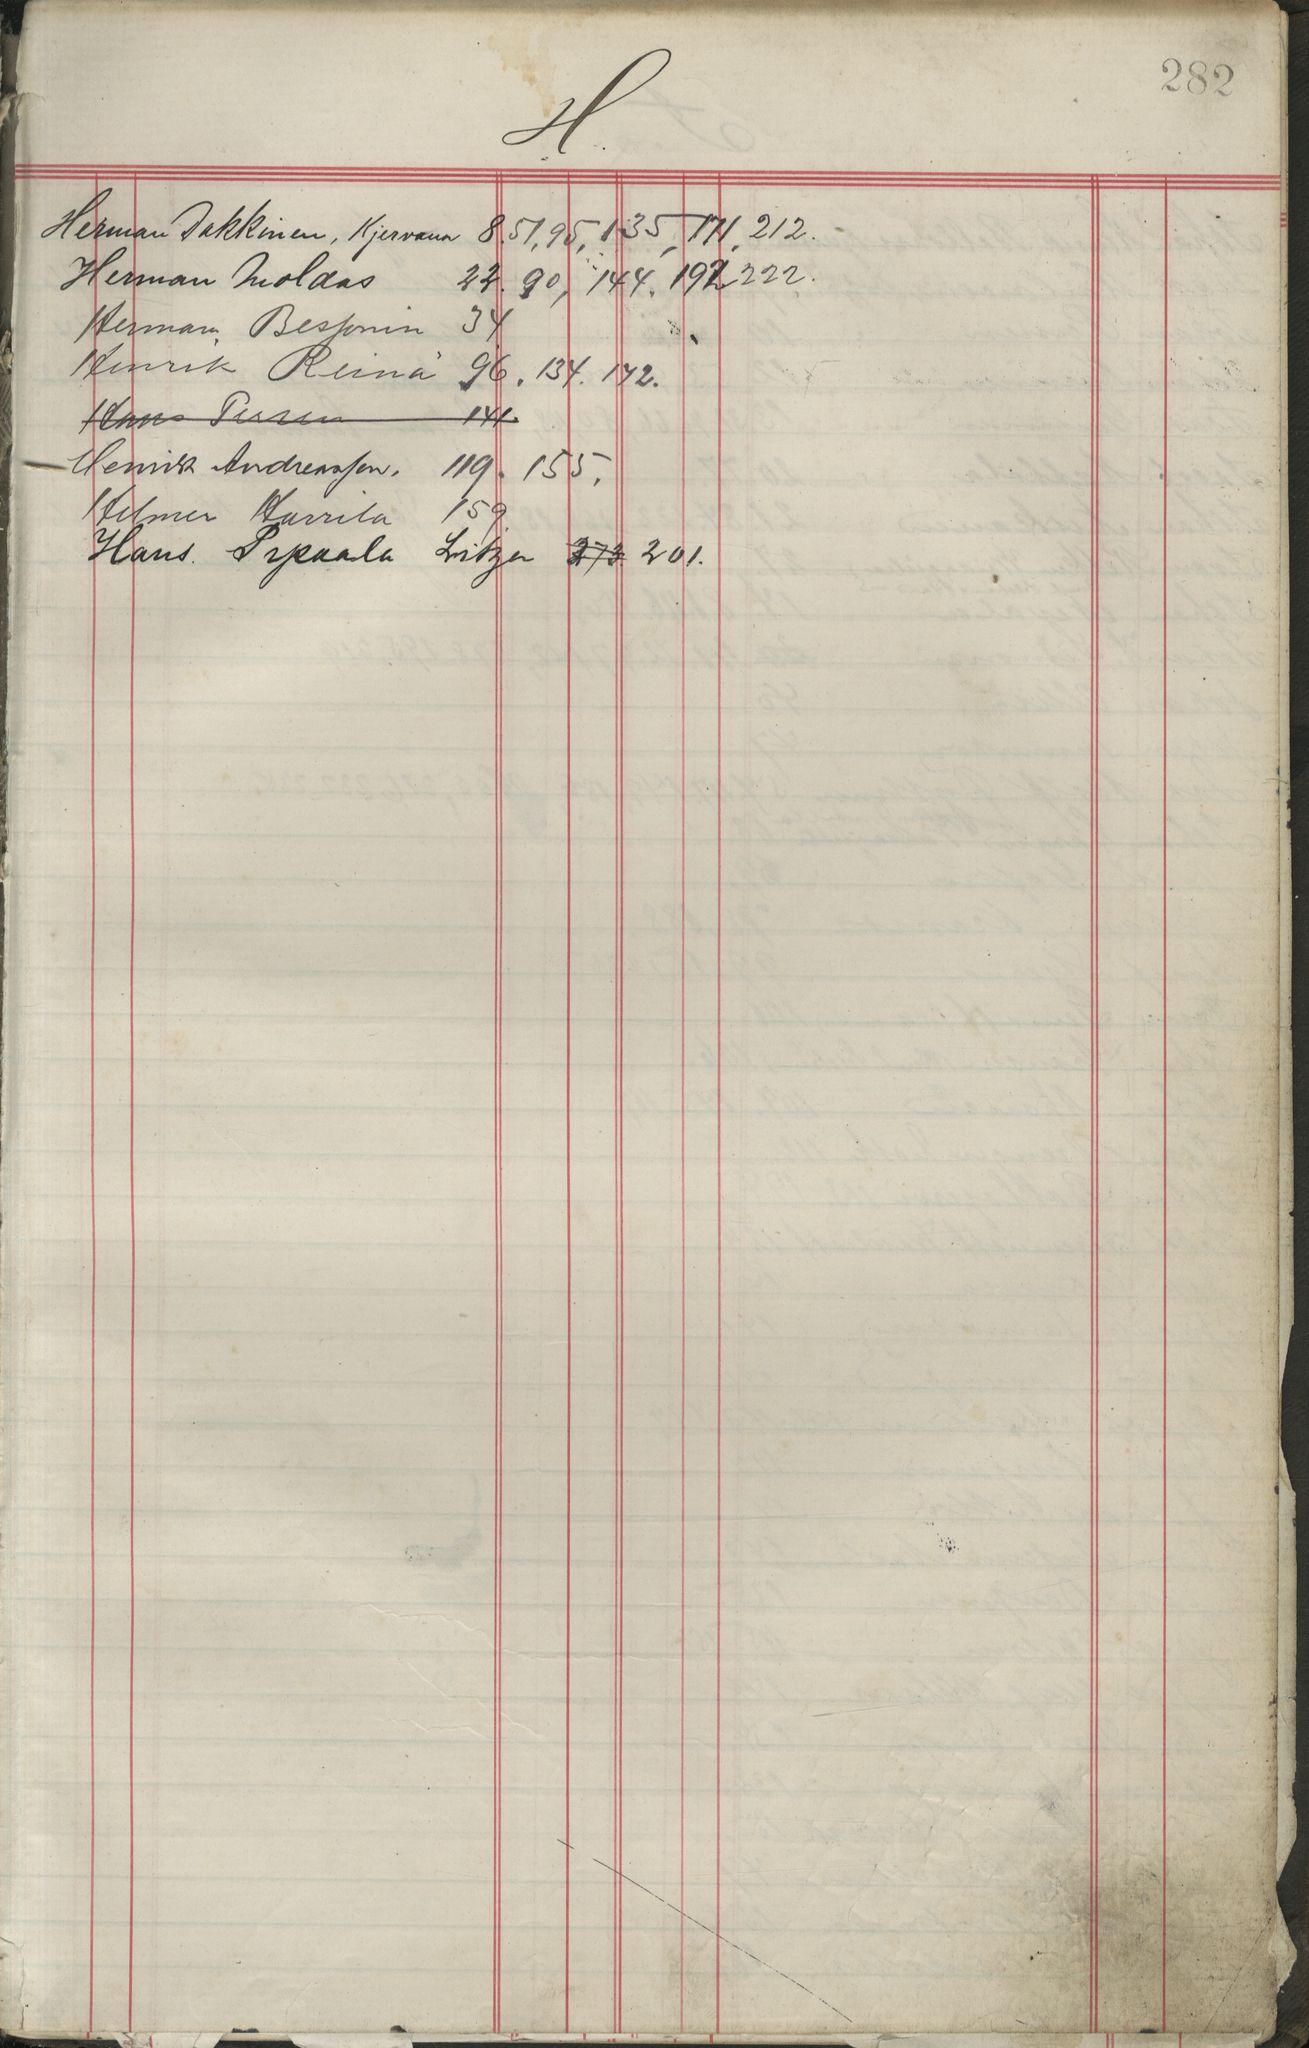 282
H.
Herman Dakkinen, Kjervann 8.51,95,135,171,212.
Herman Moldas 22.90,144.192 222.
Herman, Besfonin 34
Henrik Reinä 96.134.172.
Hans 141
Henrik Andreassen. 119. 155.
Helmer Harrila 159
Hans. 273 201.